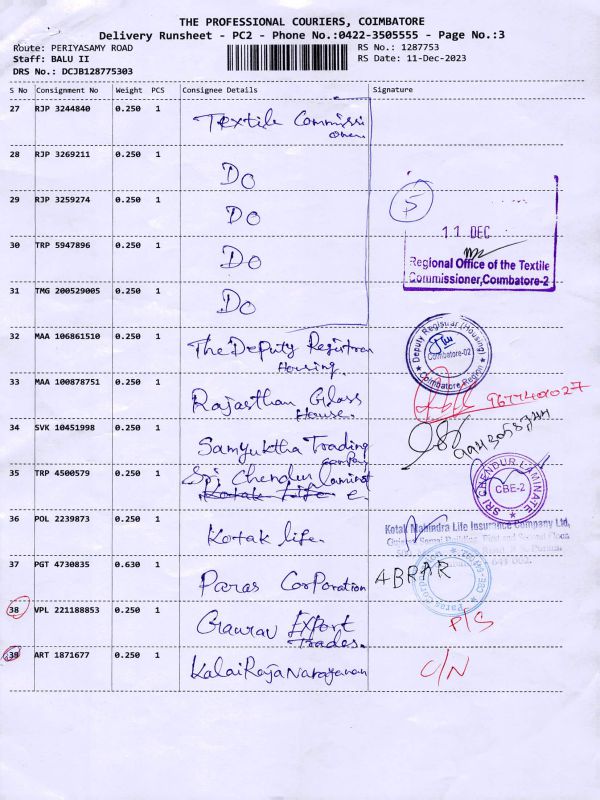 THE PROFESSIONAL COURIERS, COIMBATORE
Delivery Runsheet - PC2 - Phone No.:0422-3505555 - Page No.:3
Route: PERIYASAMY ROAD
RS No.: 1287753
Staff: BALU II
RS Date: 11-Dec-2023
DRS No.: DCJB128775303
S No Consignment No Weight PCS Consignee Details Signature
27 RJP 3244840 0.250 1 Textile Commissi
oner
28 RJP 3269211 0.250 1 Do
29 RJP 3259274 0.250 1 Do
5
30 TRP 5947896 0.250 1 Do
11 DEC
Regional Office of the Textile
Commissioner,Coimbatore-2
31 TMG 200529005 0.250 1 Do
32 MAA 106861510 0.250 1 The Deputy Registrar
Housing.
Deputy Registrar (Housing)
Coimbatore-02
Coimbatore Region
33 MAA 100878751 0.250 1 Rajasthan Glass
House.
34 SVK 10451998 0.250 1 Samyuktha Trading
Company
35 TRP 4500579 0.250 1 Sri Chendur Laminat
Kotak Life e.
SRI CHENDUR LAMINATE
CBE-2
36 POL 2239873 0.250 1 Kotak life.
Kotak Mahindra Life Insurance Company Ltd,
37 PGT 4730835 0.630 1 Paras Corporation ABRAR
Paras Corporation
38 VPL 221188853 0.250 1 Gaurav Export
Trades.
P/S
39 ART 1871677 0.250 1 KalaiRajaNarayanan
C/N